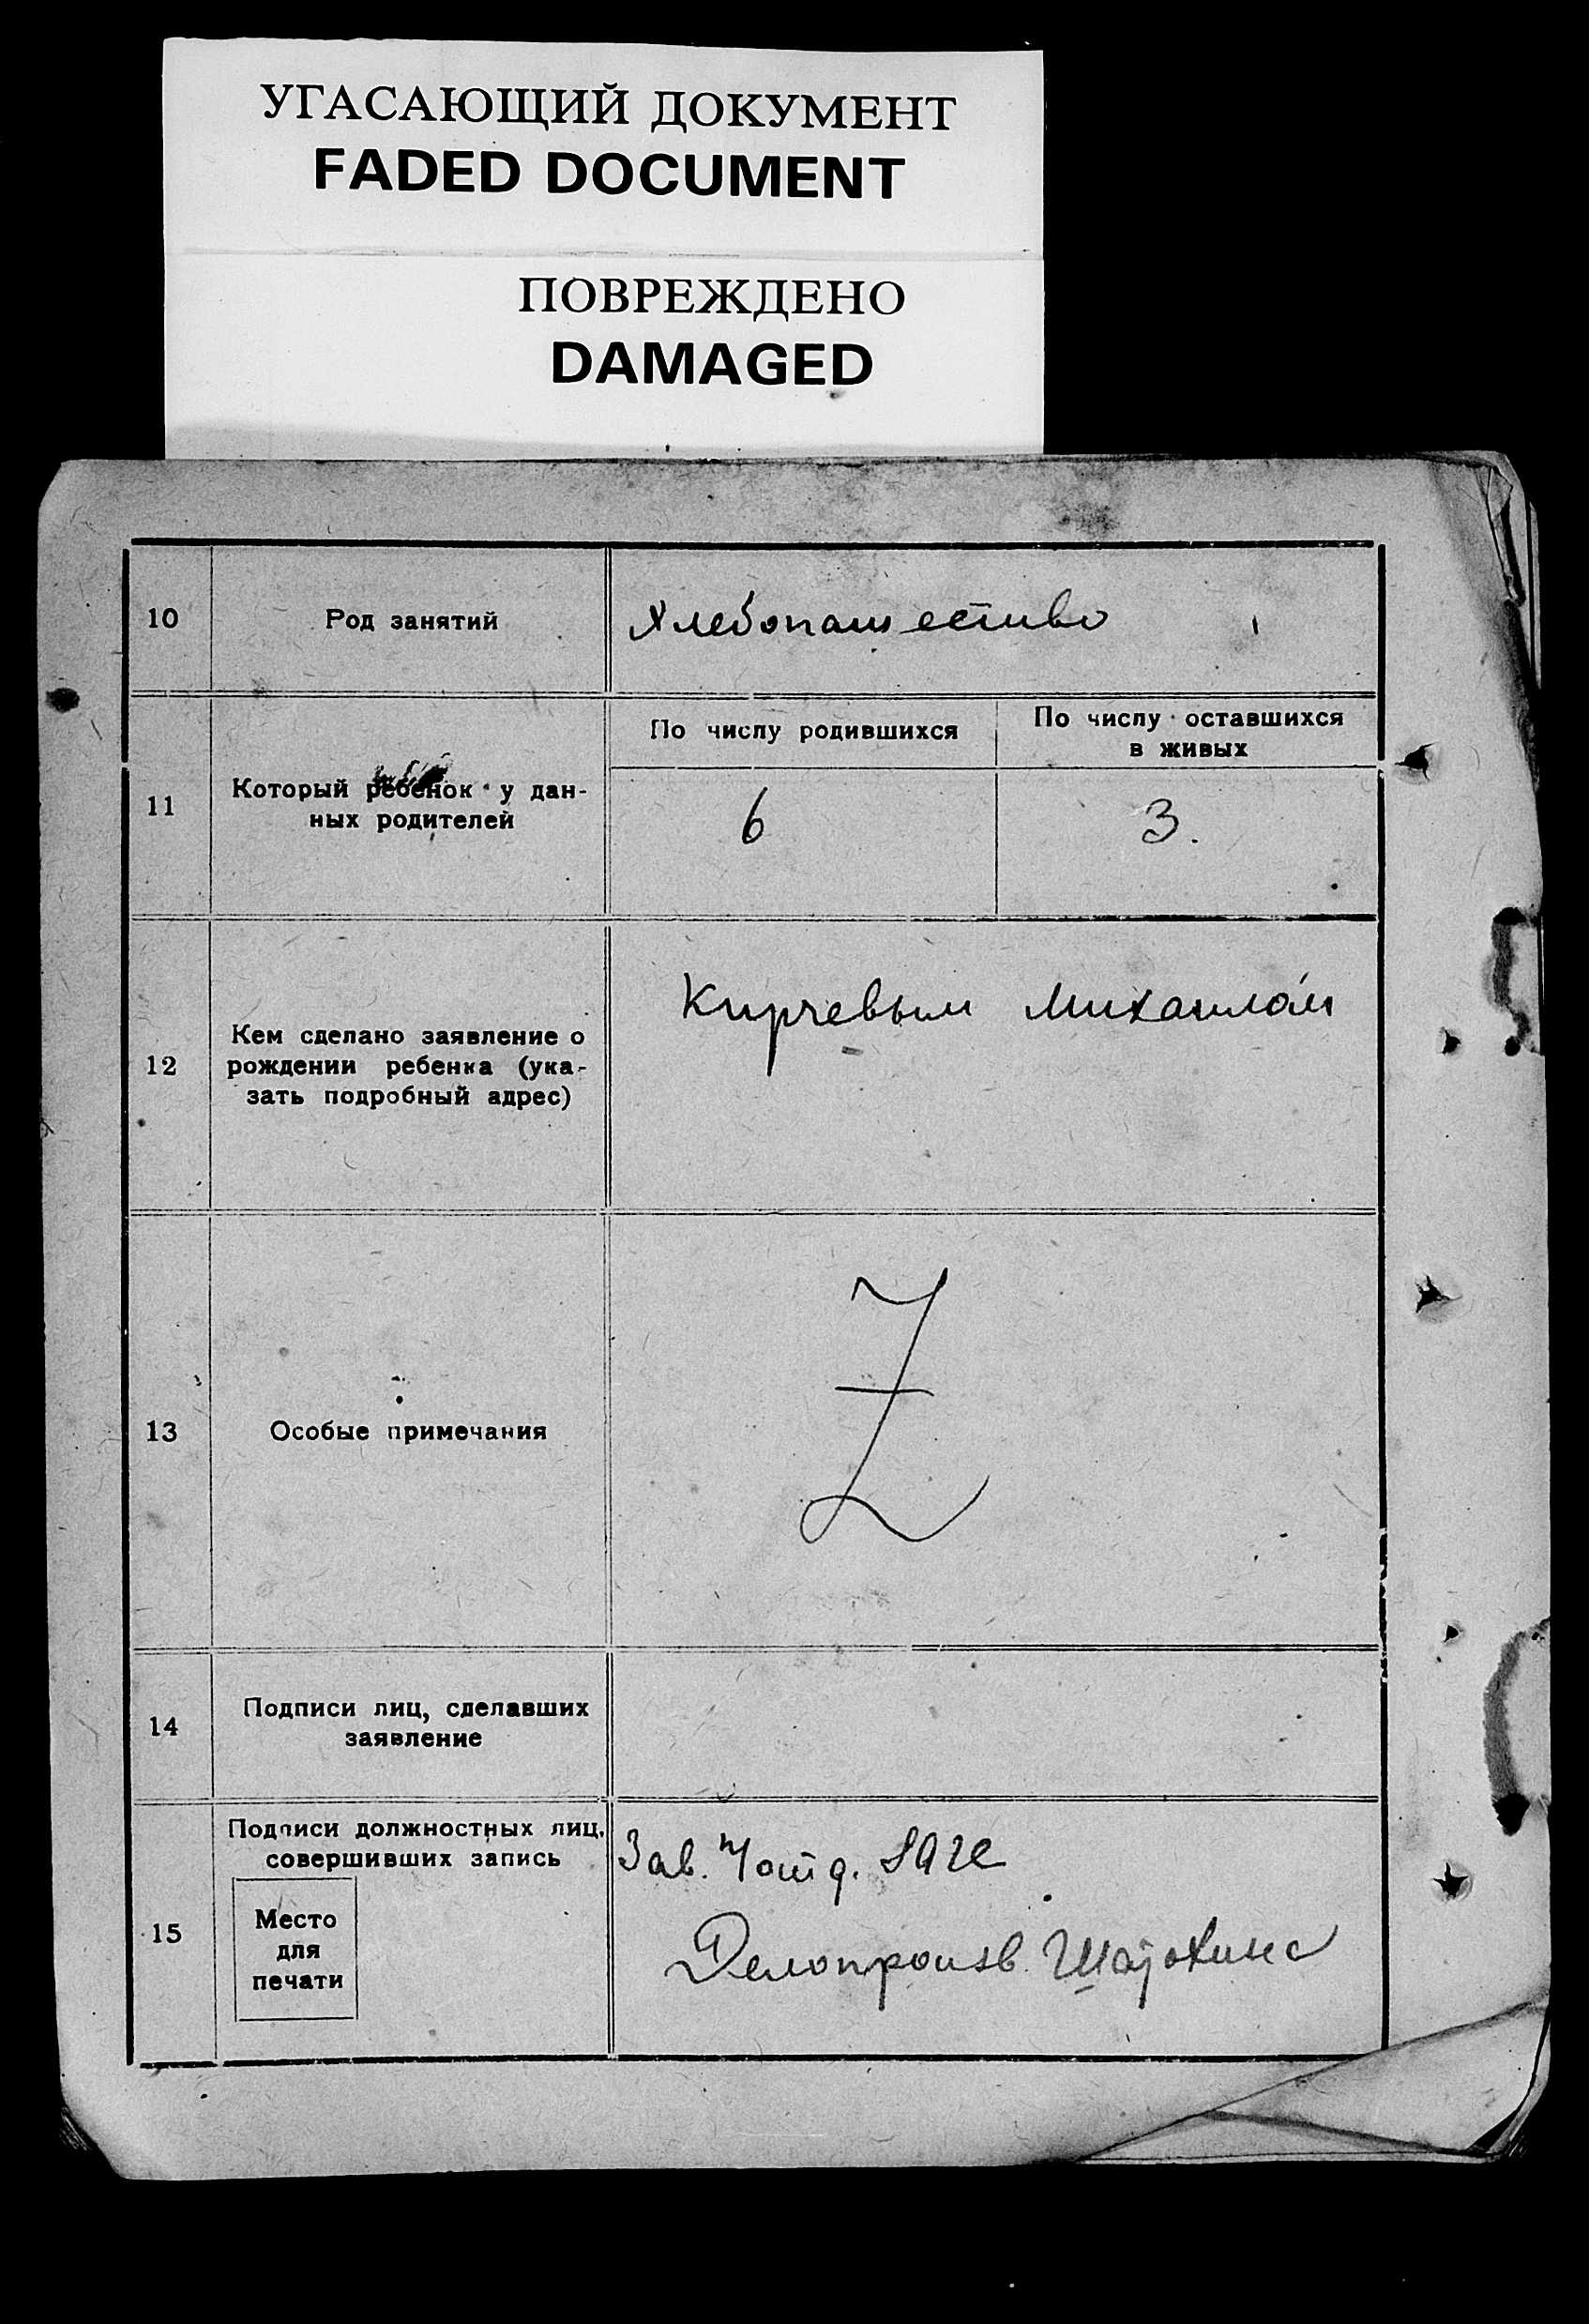 УГАСАЮЩИЙ ДОКУМЕНТ
FADED DOCUMENT
ПОВРЕЖДЕНО
DAMAGED
10
Род занятий
Хлебопашество
11
Который ребенок у дан-
ных родителей
По числу родившихся
По числу оставшихся
в живых
6
3.
12
Кем сделано заявление о
рождении ребенка (ука-
зать подробный адрес)
Кирчевым Михаилом
13
Особые примечания
Z
14
Подписи лиц, сделавших
заявление
15
Подписи должностных лиц,
совершивших запись
Место
для
печати
Зав.
Делопроизв.